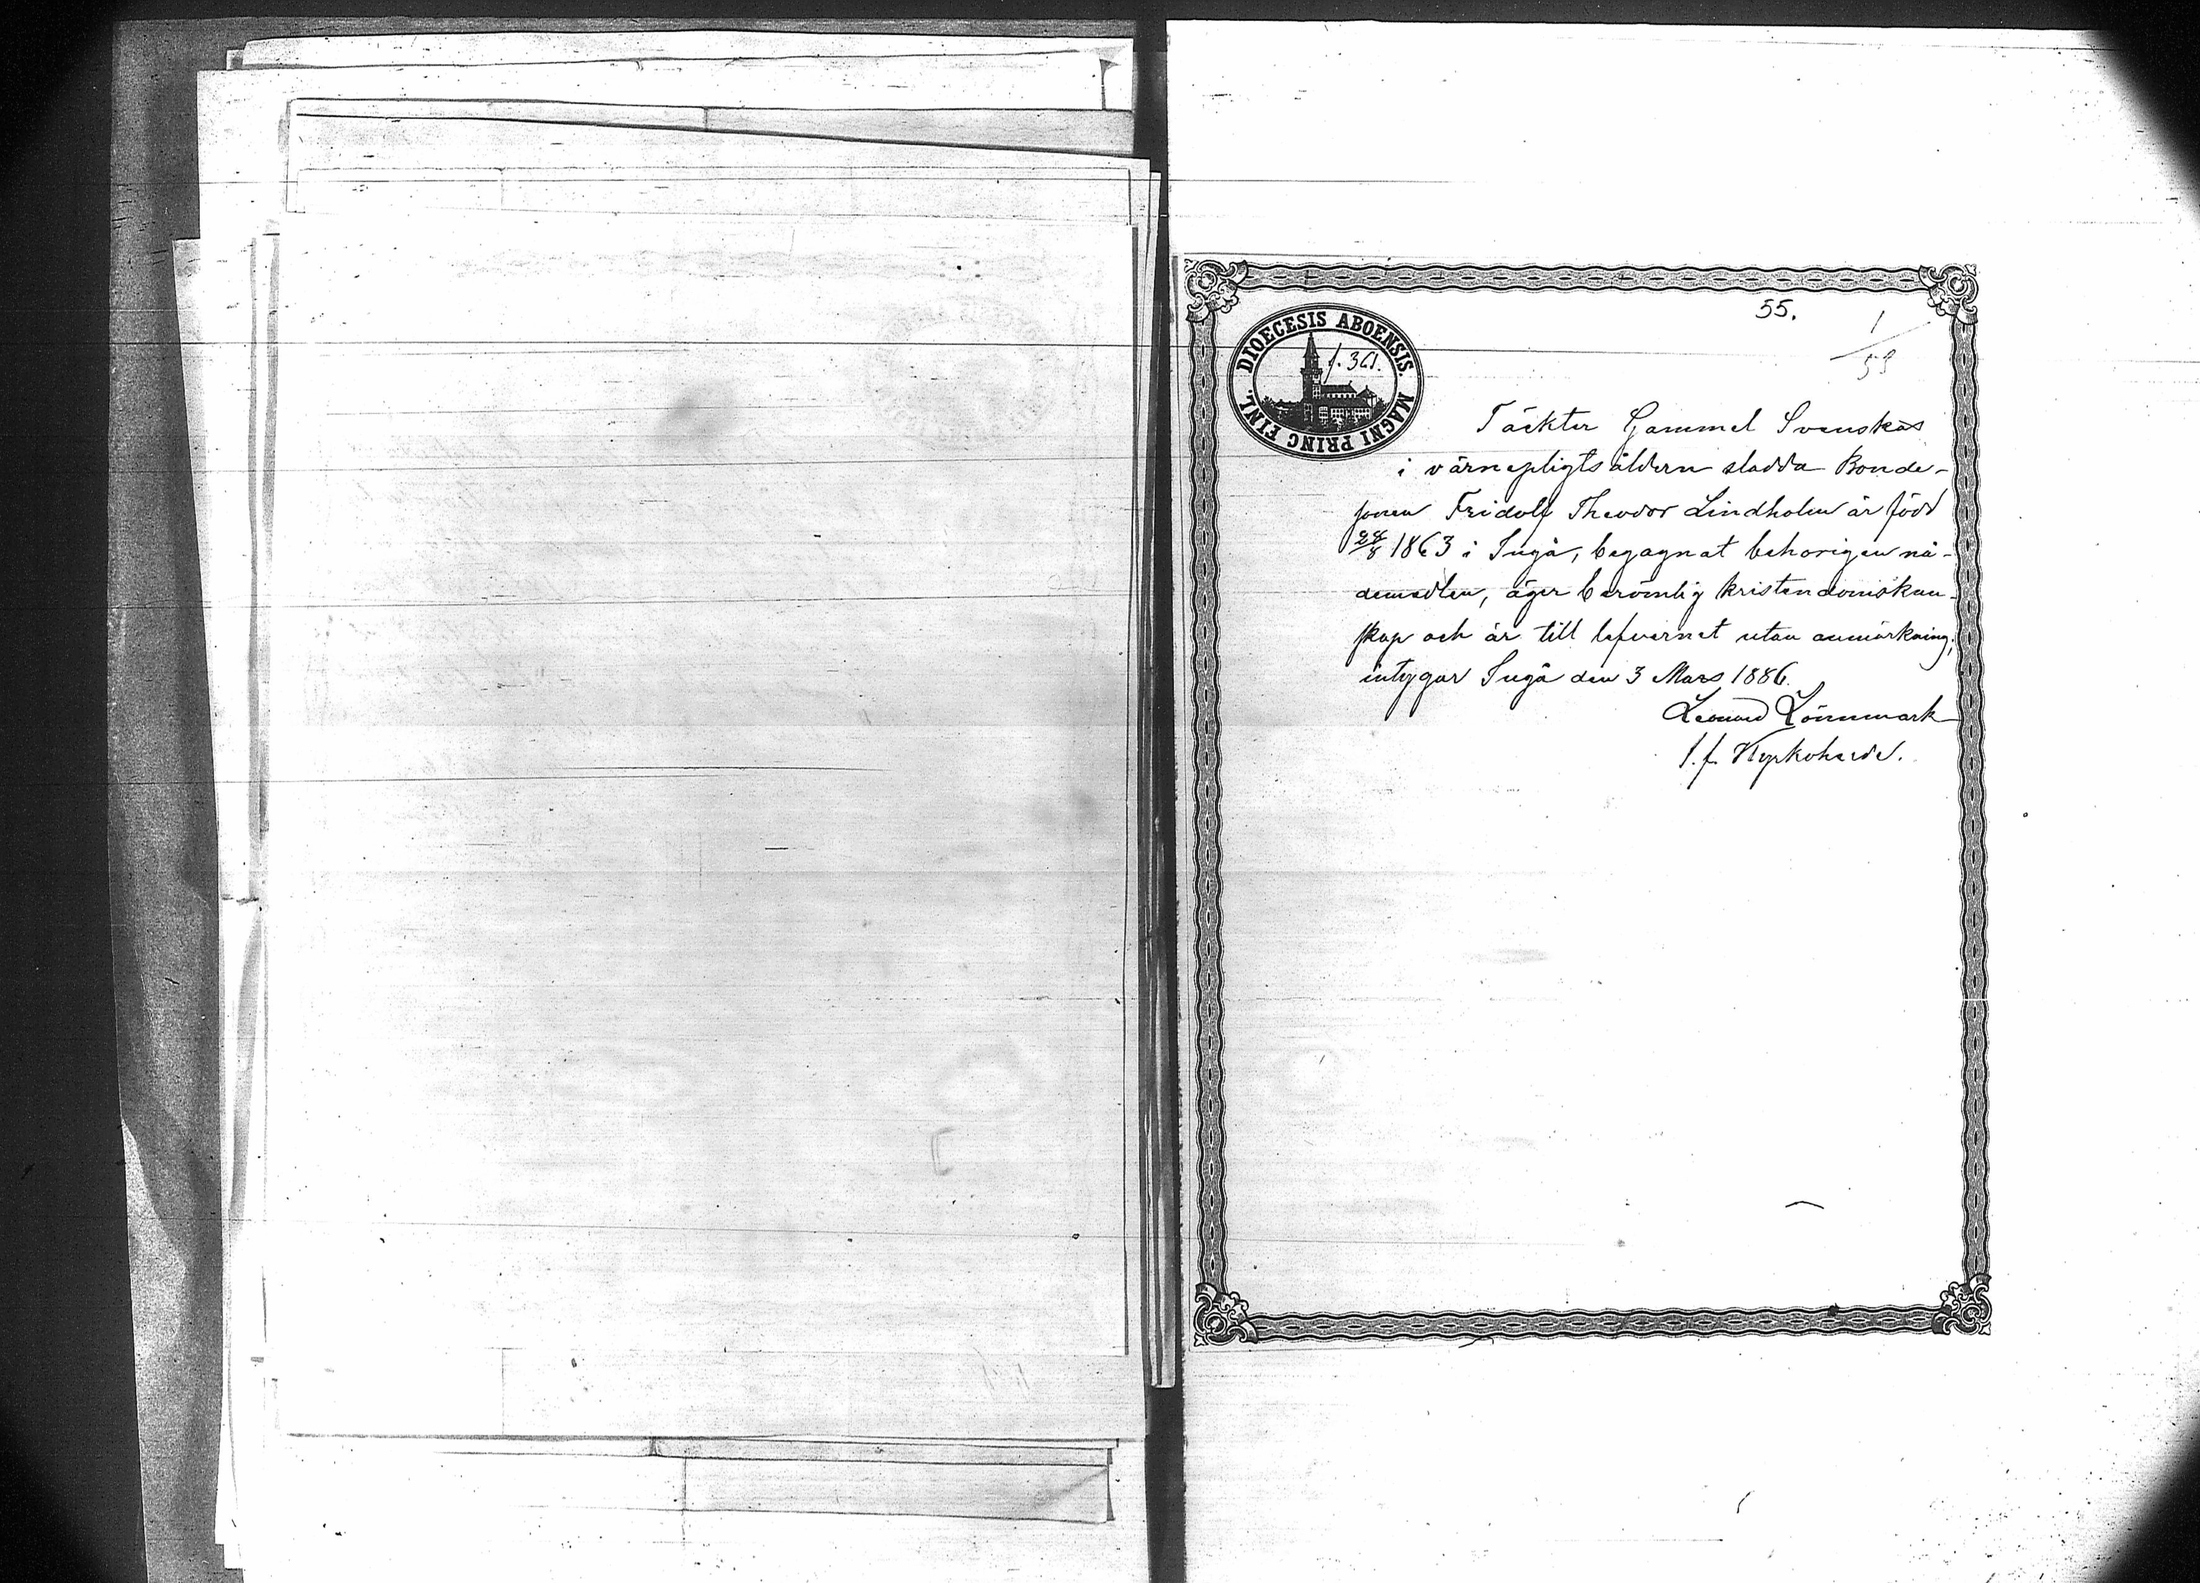 55.
1/59
DIOECESIS ABOENSIS. MAGNI PRINC FINL.
f. 361.
Täckter Gammel Svenskas
i värnepligtsåldern stadda Bonde-
sonen Fridolf Theodor Lindholm är född
28/8 1863 i Ingå, begagnat behörigen nå-
demedlen, äger berömlig kristendomskun-
skap och är till lefvernet utan anmärkning,
intygar Ingå den 3 Mars 1886.
Leonard Lönnmark
f. f. Kyrkoherde.